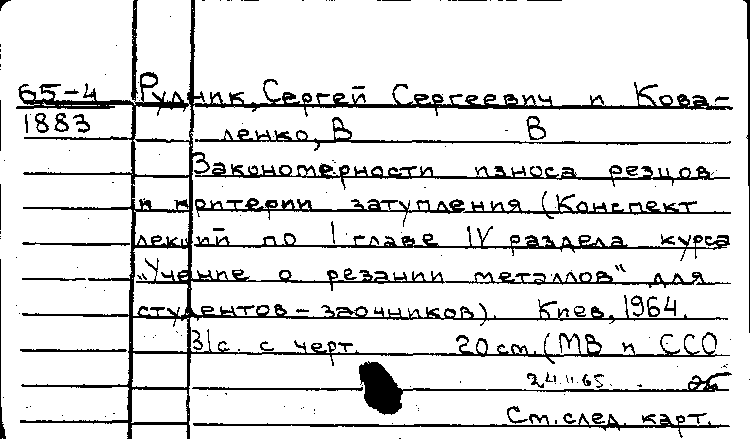 65-4 Рудник, Сергей Сергеевич и Кова-
1883 ленко, В В
Закономерности износа резцов
и критерии затупления (Конспект
лекций по I главе IV раздела курса
„Учение о резании металлов" для
студентов-заочников). Киев, 1964.
31с. с черт. 20 см. (МВ и ССО
24.II.65.
См. след. карт.